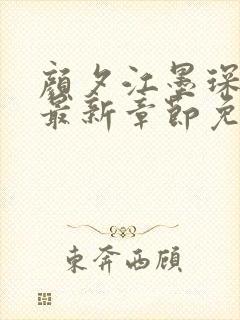 顔夕江墨琛
最新章節免
東奔西顧